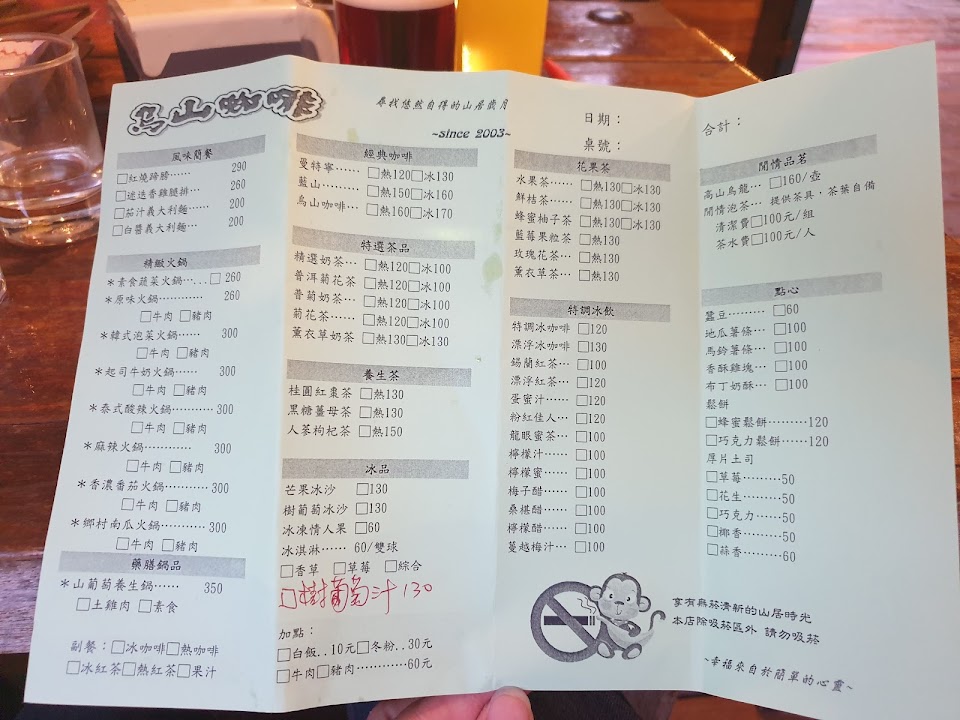 烏山咖啡
尋找悠然自得的山居歲月
~since 2003~
風味簡餐
□紅燒蹄膀…… 290
□迷迭香雞腿排… 260
□茄汁義大利麵…… 200
□白醬義大利麵… 200
精緻火鍋
＊素食蔬菜火鍋……□ 260
＊原味火鍋………… 260
□牛肉 □豬肉
＊韓式泡菜火鍋…… 300
□牛肉 □豬肉
＊起司牛奶火鍋…… 300
□牛肉 □豬肉
＊泰式酸辣火鍋………… 300
□牛肉 □豬肉
＊麻辣火鍋………… 300
□牛肉 □豬肉
＊香濃番茄火鍋………… 300
□牛肉 □豬肉
＊鄉村南瓜火鍋………… 300
□牛肉 □豬肉
藥膳鍋品
＊山葡萄養生鍋…… 350
□土雞肉 □素食
副餐：□冰咖啡□熱咖啡
□冰紅茶□熱紅茶□果汁
經典咖啡
曼特寧……… □熱120□冰130
藍山……… □熱150□冰160
烏山咖啡… □熱160□冰170
特選茶品
精選奶茶… □熱120□冰100
普洱菊花茶 □熱120□冰100
普菊奶茶… □熱120□冰100
菊花茶…… □熱120□冰100
薰衣草奶茶 □熱130□冰130
養生茶
桂圓紅棗茶 □熱130
黑糖薑母茶 □熱130
人蔘枸杞茶 □熱150
冰品
芒果冰沙 □130
樹葡萄冰沙 □130
冰凍情人果 □60
冰淇淋…… 60/雙球
□香草 □草莓 □綜合
□樹葡萄汁 130
加點：
□白飯..10元□冬粉..30元
□牛肉□豬肉…………60元
日期：
桌號：
花果茶
水果茶… □熱130□冰130
鮮桔茶…… □熱130□冰130
蜂蜜柚子茶 □熱130□冰130
藍莓果粒茶 □熱130
玫瑰花茶… □熱130
薰衣草茶… □熱130
特調冰飲
特調冰咖啡 □120
漂浮冰咖啡 □130
錫蘭紅茶… □100
漂浮紅茶… □120
蛋蜜汁…… □120
粉紅佳人… □120
龍眼蜜茶… □100
檸檬汁…… □100
檸檬蜜…… □100
梅子醋…… □100
桑椹醋…… □100
檸檬醋…… □100
蔓越梅汁… □100
合計：
閒情品茗
高山烏龍… □160/壺
閒情泡茶… 提供茶具，茶葉自備
清潔費□100元/組
茶水費□100元/人
點心
蠶豆……… □60
地瓜薯條… □100
馬鈴薯條… □100
香酥雞塊… □100
布丁奶酥… □100
鬆餅
□蜂蜜鬆餅………120
□巧克力鬆餅……120
厚片土司
□草莓………50
□花生………50
□巧克力……50
□椰香………50
□蒜香………60
享有無菸清新的山居時光
本店除吸菸區外 請勿吸菸
~幸福來自於簡單的心靈~